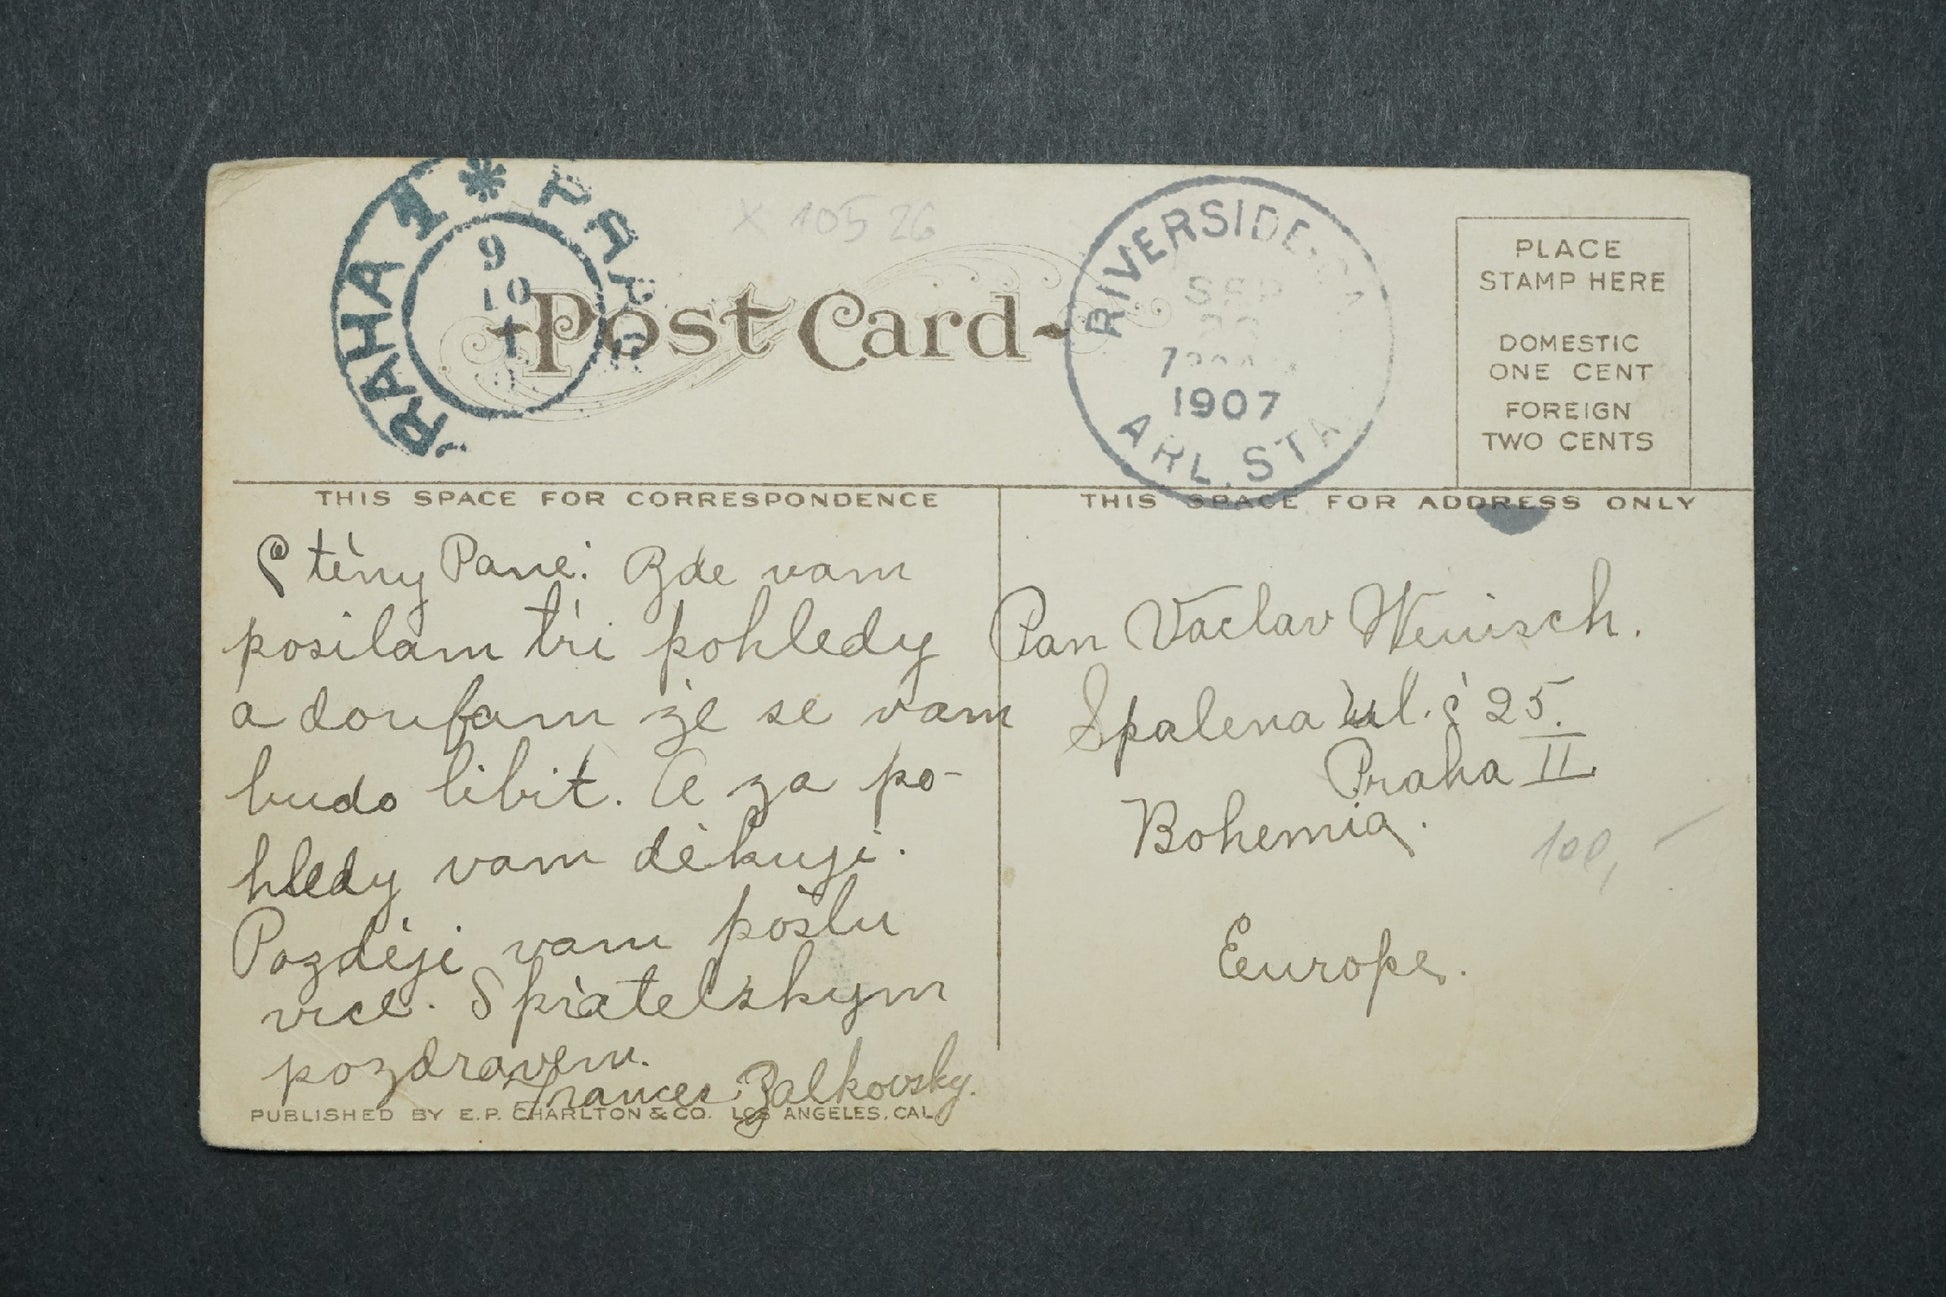 PRAHA 1 * PRAG
9
10
X 10526
Post Card
RIVERSIDE
SEP
1907
ARL. STA.
PLACE
STAMP HERE
DOMESTIC
ONE CENT
FOREIGN
TWO CENTS
THIS SPACE FOR CORRESPONDENCE
THIS SPACE FOR ADDRESS ONLY
Ctěny Pane: Zde vam
posilam tři pohledy
a doufam že se vam
budo libit. A za po-
hledy vam děkuji.
Pozděj̇i vam pošlu
vice. S přatelzkym
pozdravem.
Frances Zalkovsky.
Pan Václav Wenisch.
Spalena ul. č 25.
Praha II
Bohemia.
100,-
Europe.
PUBLISHED BY E.P. CHARLTON & CO. LOS ANGELES, CAL.